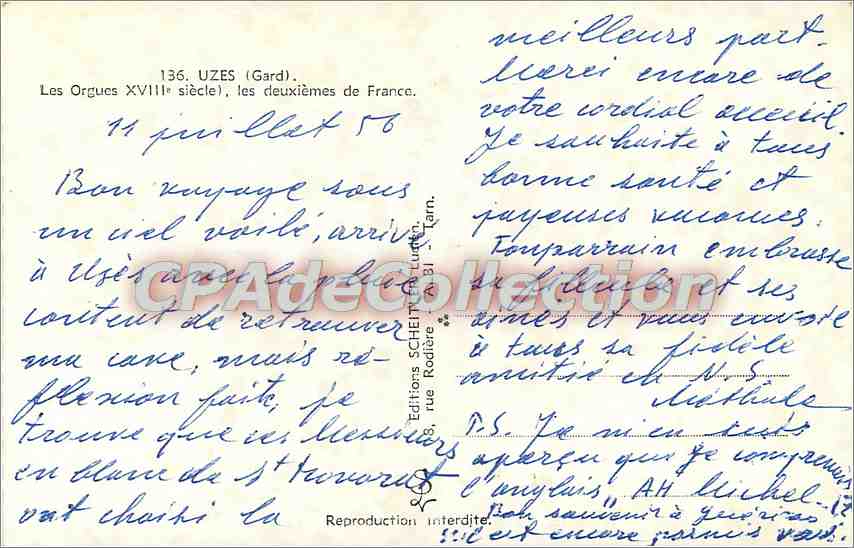 136. UZES (Gard).
Les Orgues XVIIIe siècle), les deuxièmes de France.
11 juillet 56
Bon voyage sous
un ciel voilé, arrivé
à Uzès avec la pluie
content de retrouver
ma cave, mais ré-
flexion faite, je
trouve que ces Messieurs
en blanc de St
ont choisi la
meilleurs part.
Merci encore de
votre cordial accueil.
Je souhaite à tous
bonne santé et
joyeuses vacances.
Tonparrain embrasse
sa filleule et ses
ainés et vous envoie
à tous sa fidèle
amitié en N.S.
P.S. Je m'en suis
aperçu que je comprenais
l'anglais, AH Michel
Bon souvenir à
c'est encore permis
Editions SCHEIT
8, rue Rodière - ALBI - Tarn.
Reproduction interdite.
CPAdeCollection